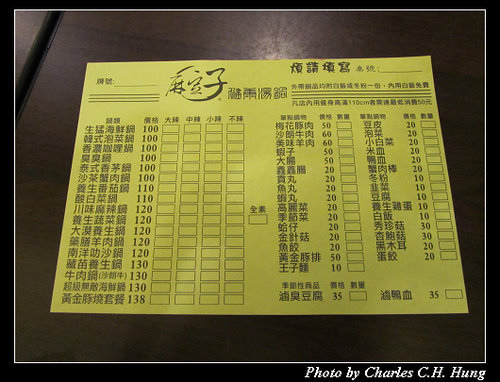 牌號:
麻豆子
健康湯鍋
煩請填寫 桌號:
外帶鍋品均附白飯或冬粉一份、內用白飯免費
凡店內用餐身高滿110cm者需達最低消費50元
鍋類 價格 大辣 中辣 小辣 不辣
生猛海鮮鍋 100
韓式泡菜鍋 100
香濃咖哩鍋 100
臭臭鍋 100
泰式香茅鍋 100
沙茶蟹肉鍋 100
養生番茄鍋 110
酸白菜鍋 110
川味麻辣鍋 120 全素
養生蔬菜鍋 120
大漠養生鍋 120
藥膳羊肉鍋 120
南洋叻沙鍋 120
藏苗養生鍋 130
牛肉鍋(沙朗牛) 130
超級無敵海鮮鍋 130
黃金豚燒套餐 138
單點鍋物 價格 數量
梅花豚肉 50
沙朗牛肉 60
美味羊肉 60
蝦子 50
大腸 50
鑫鑫腸 20
貢丸 20
魚丸 20
蝦丸 20
高麗菜 20
季節菜 20
蛤仔 20
金針菇 20
魚餃 20
黃金豚排 50
王子麵 10
單點鍋物 價格 數量
豆皮 20
泡菜 20
小白菜 20
米血 20
鴨血 20
蟹肉棒 20
冬粉 10
韭菜 10
豆腐 10
養生雞蛋 10
白飯 10
秀珍菇 30
杏鮑菇 30
黑木耳 20
蛋餃 20
季節性商品 價格 數量
滷臭豆腐 35 滷鴨血 35
Photo by Charles C.H. Hung